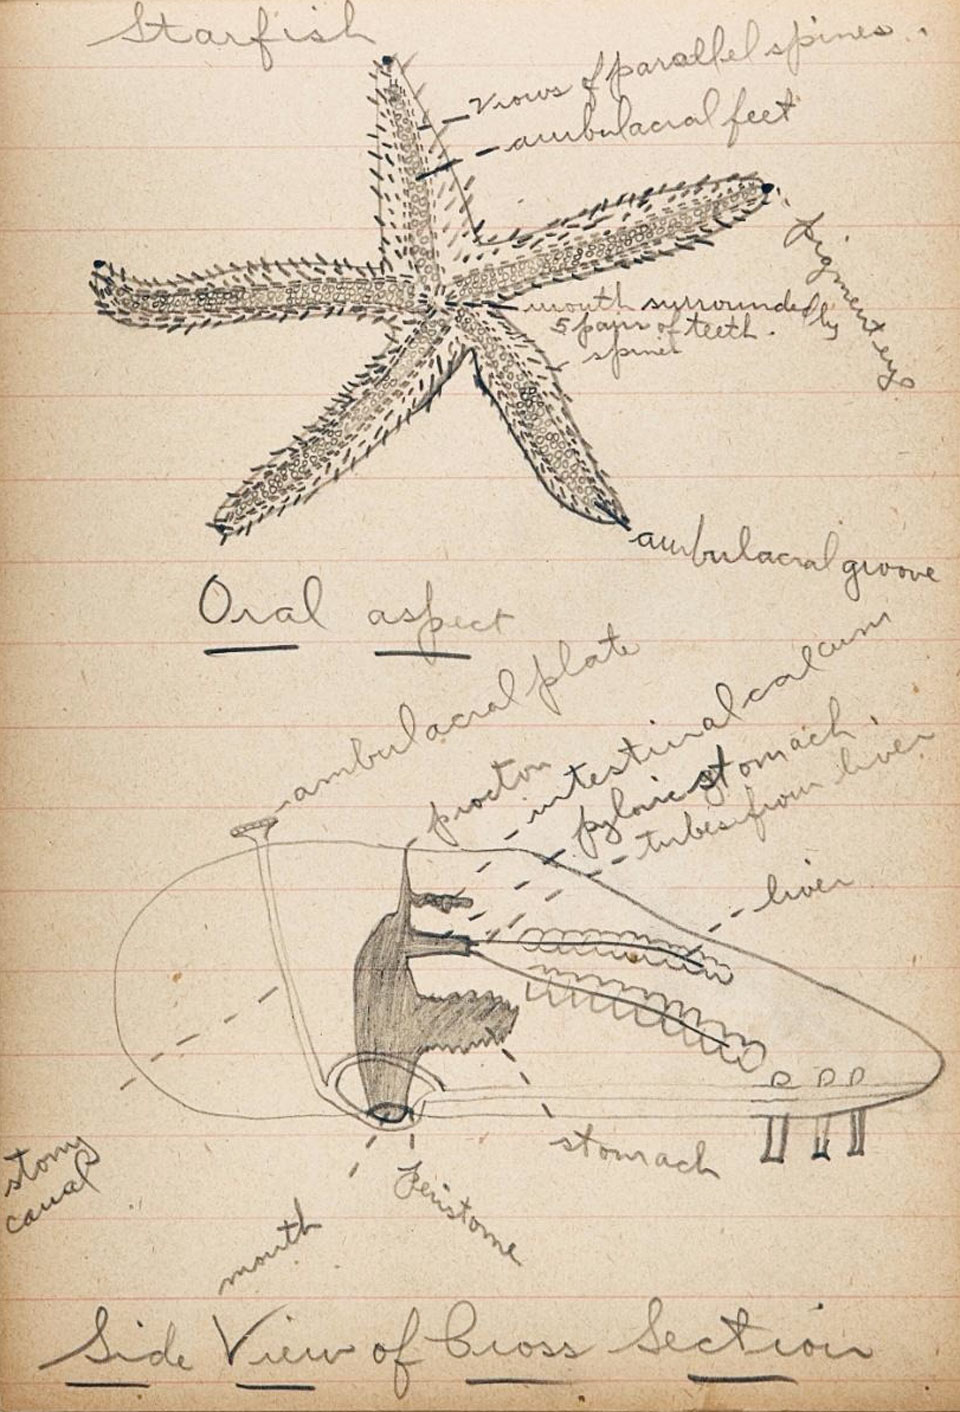 Starfish
views of parallel spines
ambulacral feet
pigment eye
mouth surrounded by
5 pairs of teeth.
spines
ambulacral groove
Oral aspect
ambulacral plate
procton
intestinal calcum
pyloric stomach
tubes from liver
liver
stomach
stony
canal
Peristome
mouth
Side View of Cross Section